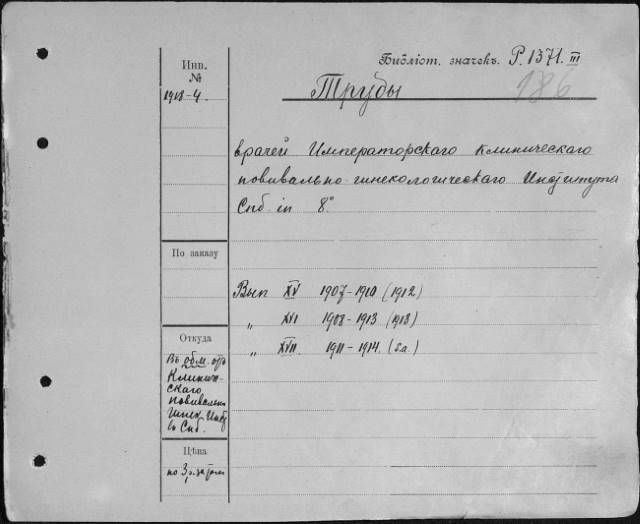 Инв. №
1918-4.
Библіот. значекъ. Р. 1371. III
186
Труды
врачей Императорскаго Клиническаго
повивально-гинекологическаго Института
Спб. in 8°
По заказу
Вып XV 1907-1910 (1912)
„ XVI 1908-1913 (1913)
„ XVII 1911-1914. (s.a.)
Откуда
Въ обм. отъ
Клиниче-
скаго
повивально
Гинек. Инст
въ Спб.
Цѣна
по 3 р. за томъ